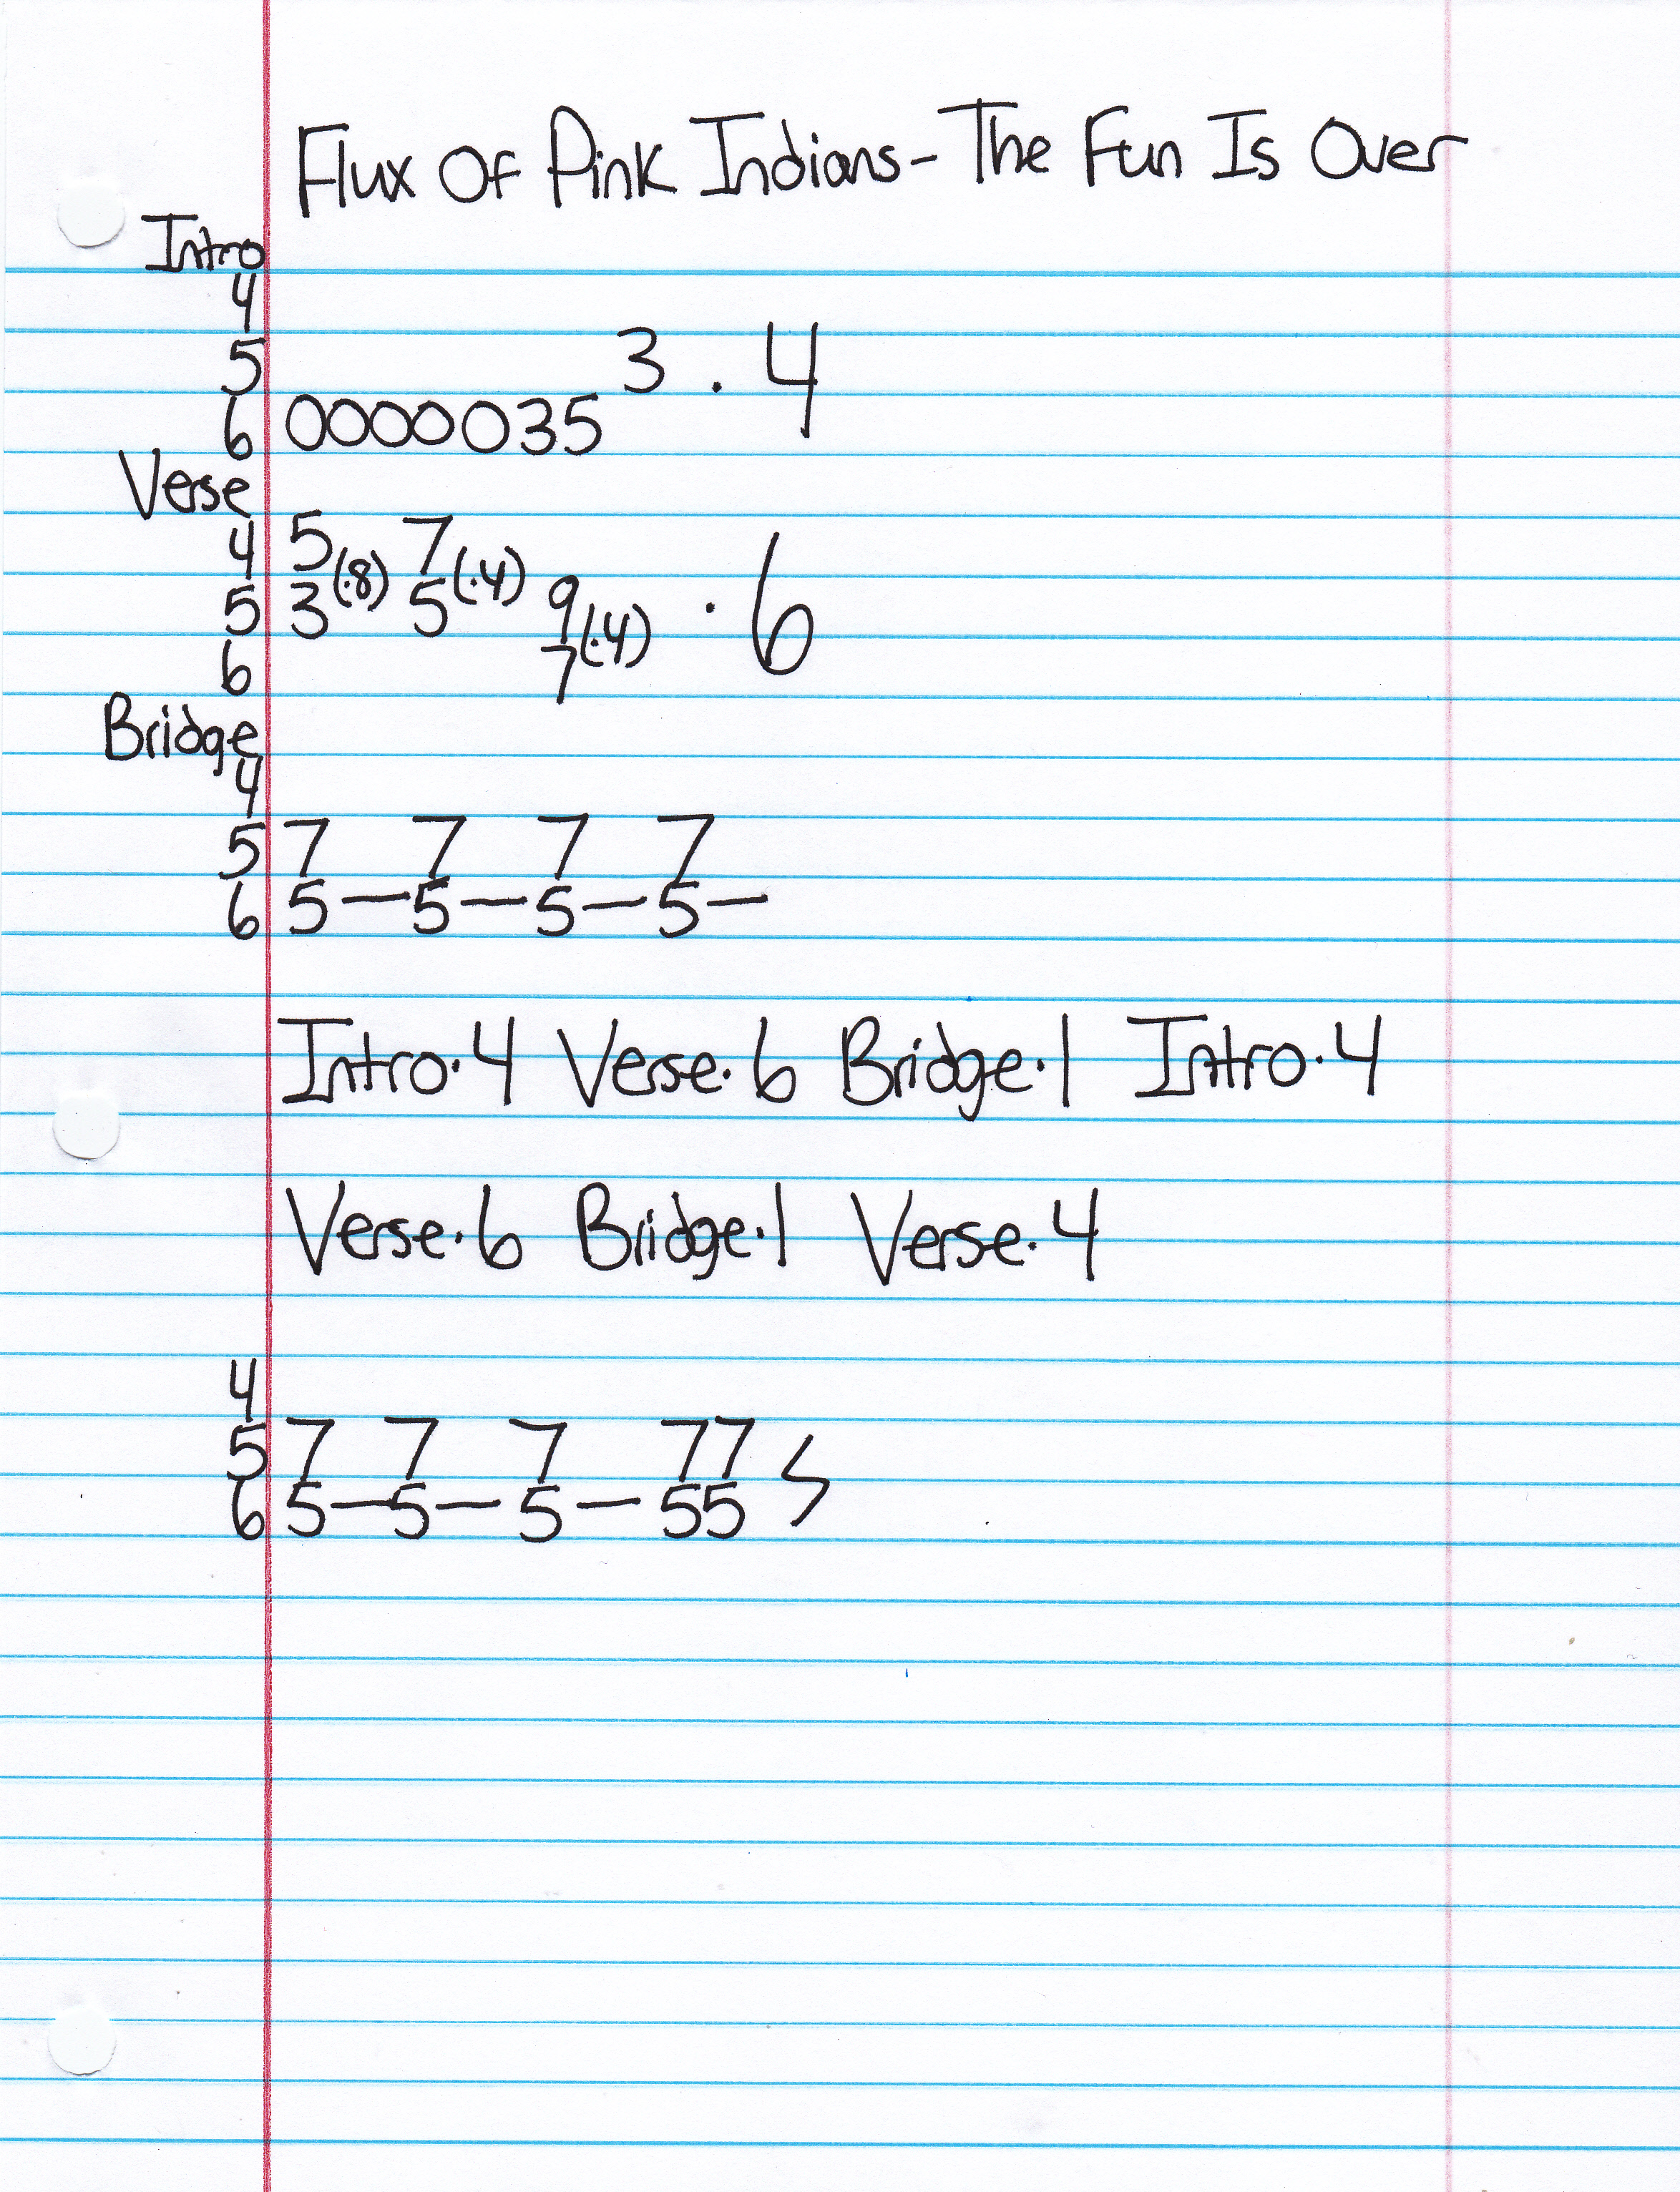 Flux Of Pink Indians - The Fun Is Over
Intro
4
5 3 · 4
6 0000035
Verse
4 5 7
(·8) (·4)
5 3 5 9 · 6
(·4)
6 7
Bridge
4
5 7 7 7 7
6 5 — 5 — 5 — 5 —
Intro·4 Verse·6 Bridge·1 Intro·4
Verse·6 Bridge·1 Verse·4
4
5 7 7 7 77
6 5 — 5 — 5 — 55